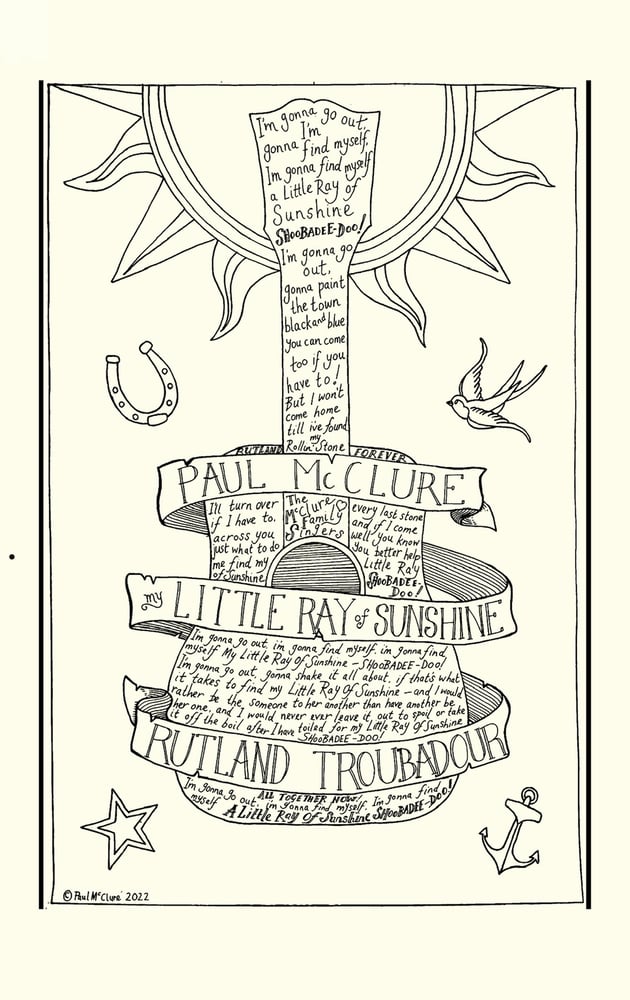 I'm gonna go out,
I'm
gonna find myself,
Im gonna find myself
a Little Ray of
Sunshine
SHOOBADEE-DOO!
I'm gonna go
out,
gonna paint
the town
black and blue
you can come
too if you
have to!
But I won't
come home
till i've found
my
Rollin' Stone
RUTLAND FOREVER
PAUL McCLURE
I'll turn over
if I have to.
across you
just what to do
me find my
of Sunshine
The
McClure
Family
Singers
every last stone
and if I come
well you know
you better help
Little Ray
SHOOBADEE-
DOO!
my LITTLE RAY of SUNSHINE
I'm gonna go out, im gonna find myself. im gonna find
myself My Little Ray Of Sunshine - SHOOBADEE-DOO!
I'm gonna go out, gonna shake it all about, if that's what
it takes to find my Little Ray Of Sunshine - and I would
rather be the someone to her another than have another be
her one, and I would never ever leave it, out to spoil or take
it off the boil after I have toiled for my Little Ray Of Sunshine
SHOOBADEE-DOO!
RUTLAND TROUBADOUR
ALL TOGETHER NOW!
I'm gonna go out, i'm gonna find myself. I'm gonna find
myself
A Little Ray Of Sunshine SHOOBADEE-DOO!
© Paul McClure 2022